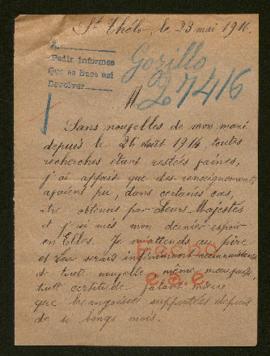 St Thélo, le 23 mai 1916.
A
Pedir informes
Que se hace así
Devolver
Gozillo
27416
M
Sans nouvelles de mon mari
depuis le 26 août 1914, toutes
recherches étant restées vaines,
j'ai appris que des renseignements
avaient pu, dans certains cas,
être obtenus par Leurs Majestés
et j'ai mis mon dernier espoir
en Elles. Je m'attends au pire
et leur serais infiniment reconnaissante
de toute nouvelle même mauvaise,
toute certitude étant mieux
que les angoisses supportées depuis
de si longs mois.